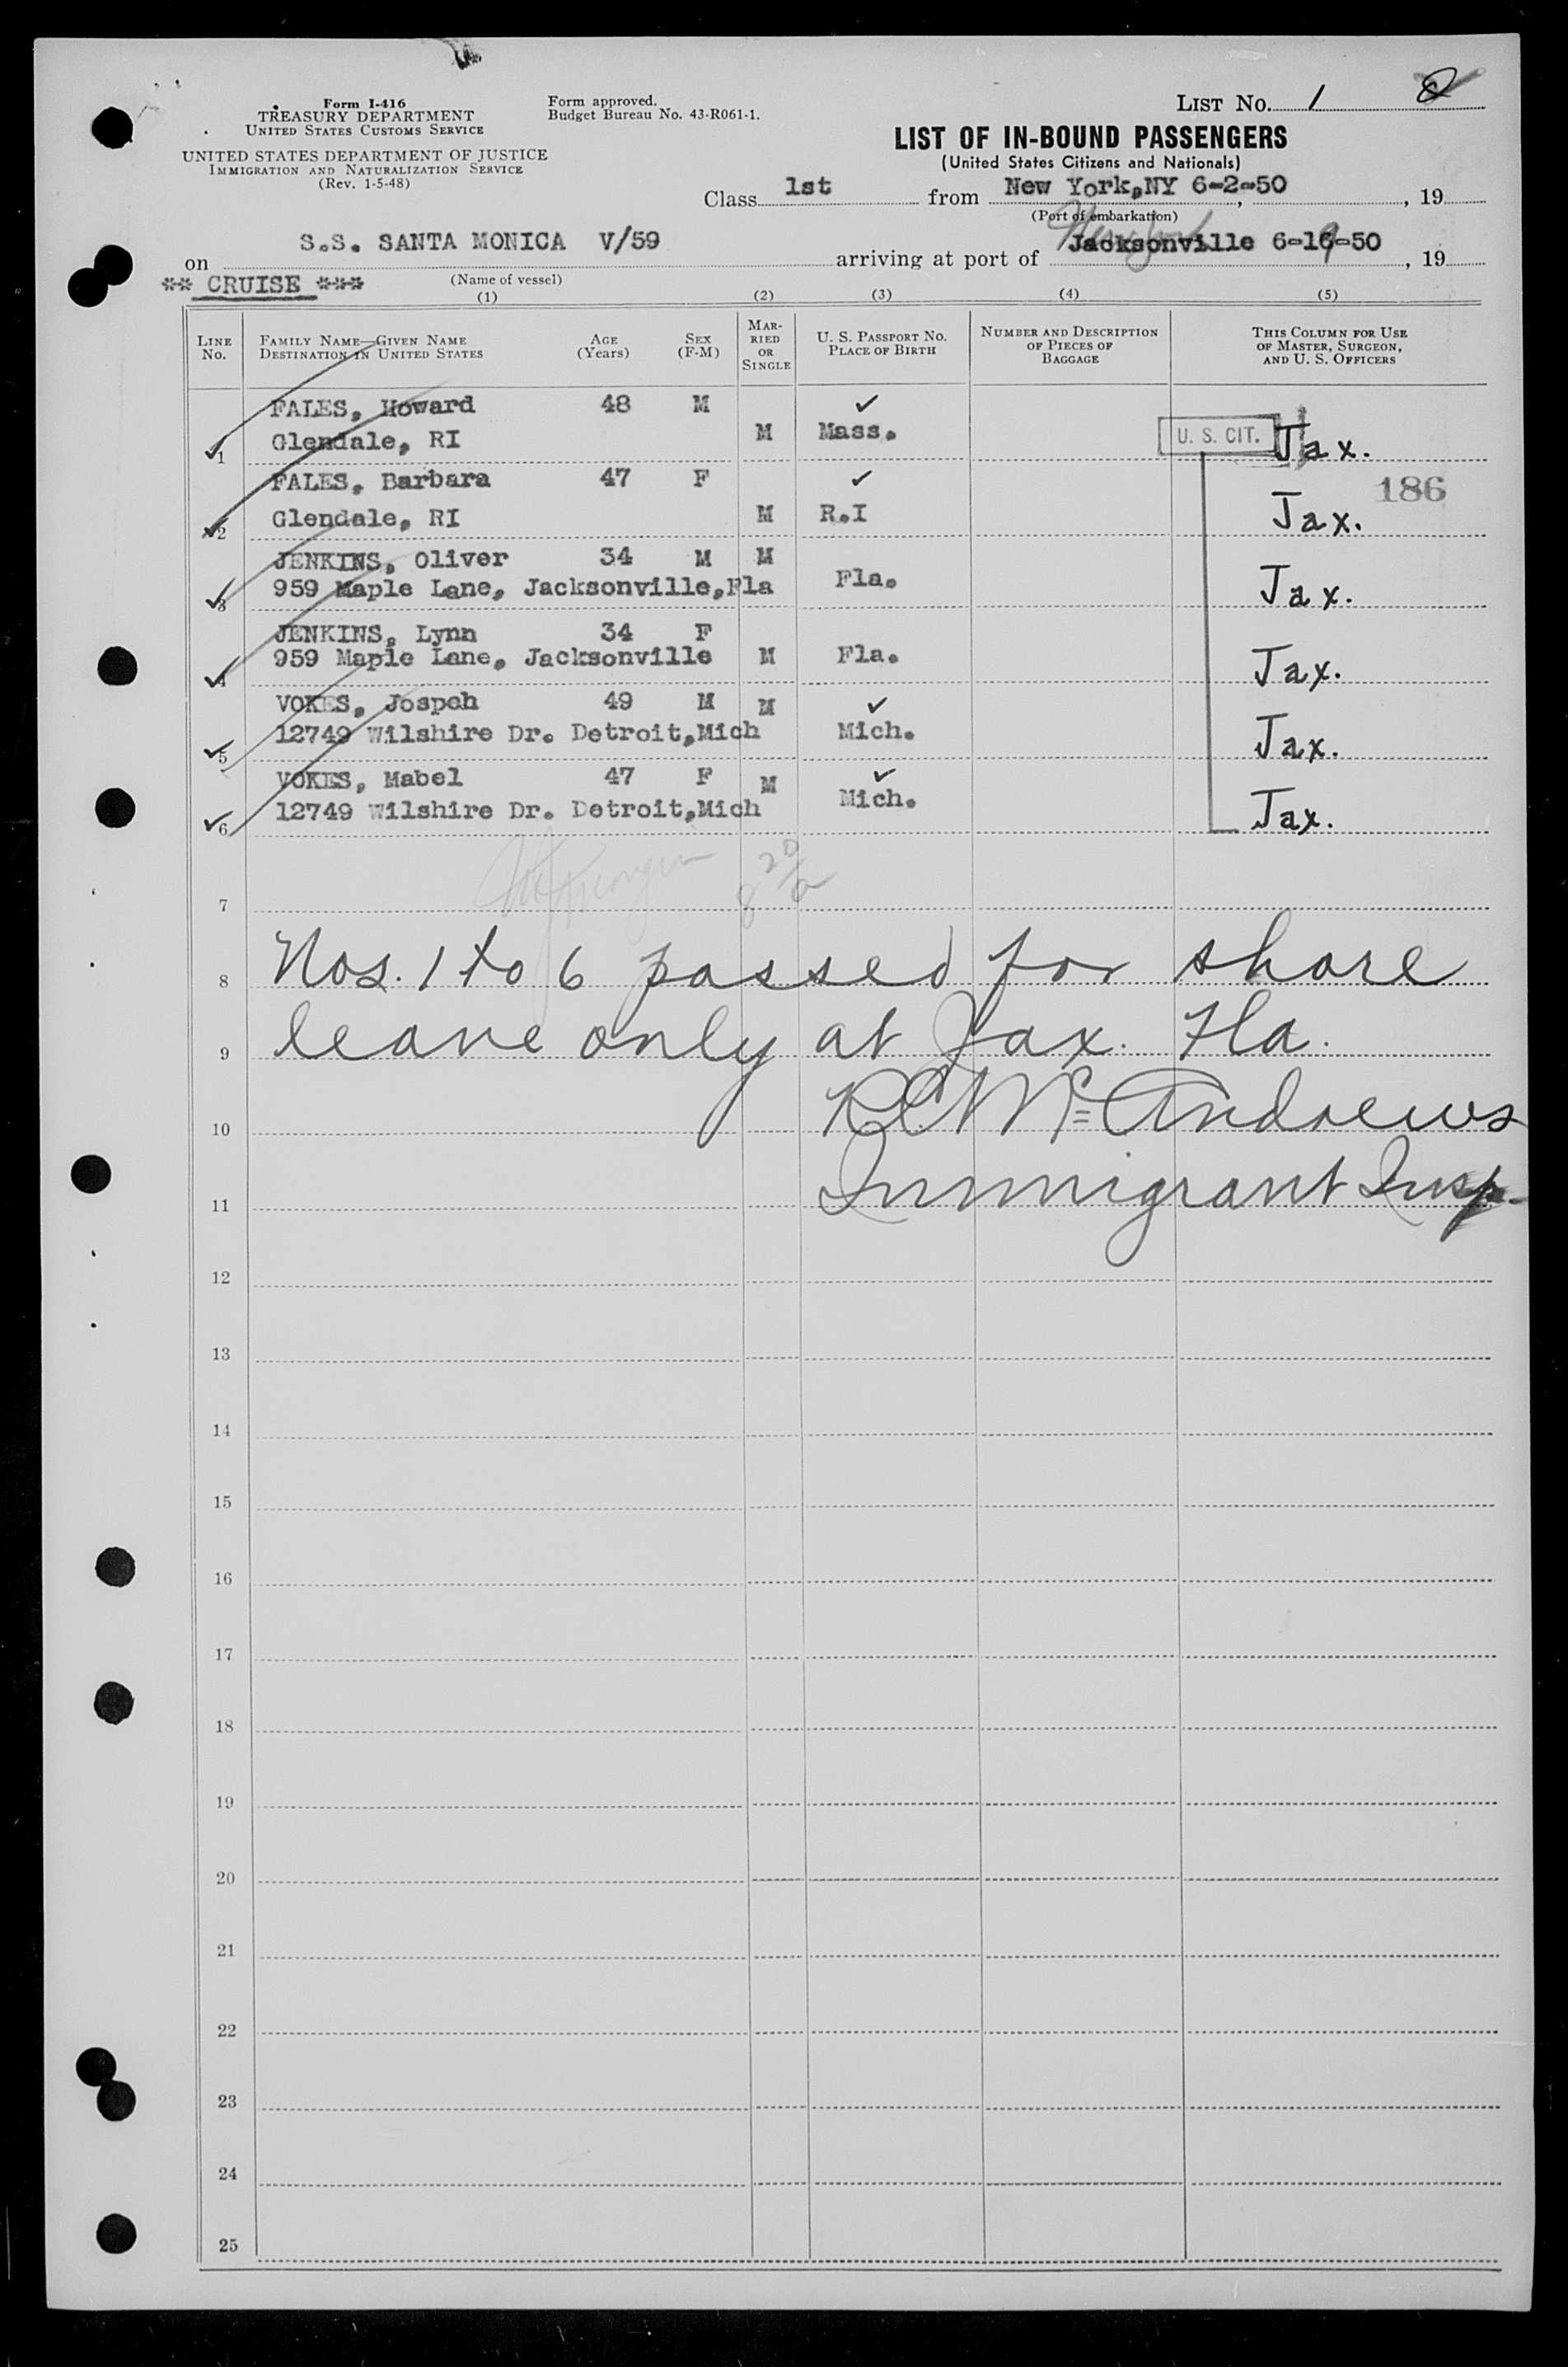 Form I-416
TREASURY DEPARTMENT
UNITED STATES CUSTOMS SERVICE
UNITED STATES DEPARTMENT OF JUSTICE
IMMIGRATION AND NATURALIZATION SERVICE
(Rev. 1-5-48)
Form approved.
Budget Bureau No. 43-R061-1.
LIST No. 1
LIST OF IN-BOUND PASSENGERS
(United States Citizens and Nationals)
Class 1st from New York,NY 6-2-50, 19
(Port of embarkation)
on S.S. SANTA MONICA V/59 arriving at port of Jacksonville 6-16-50, 19
** CRUISE *** (Name of vessel)
(1) (2) (3) (4) (5)
LINE No. FAMILY NAME—GIVEN NAME DESTINATION IN UNITED STATES AGE (Years) SEX (F-M) MARRIED OR SINGLE U. S. PASSPORT NO. PLACE OF BIRTH NUMBER AND DESCRIPTION OF PIECES OF BAGGAGE THIS COLUMN FOR USE OF MASTER, SURGEON, AND U. S. OFFICERS
FALES, Howard 48 M ✓
1 Glendale, RI M Mass. U. S. CIT. Jax.
FALES, Barbara 47 F ✓ 186
2 Glendale, RI M R.I Jax.
JENKINS, Oliver 34 M M
3 959 Maple Lane, Jacksonville,Fla Fla. Jax.
JENKINS, Lynn 34 F
4 959 Maple Lane, Jacksonville M Fla. Jax.
VOKES, Jospeh 49 M M ✓
5 12749 Wilshire Dr. Detroit,Mich Mich. Jax.
VOKES, Mabel 47 F M ✓
6 12749 Wilshire Dr. Detroit,Mich Mich. Jax.
7
8 Nos. 1 to 6 passed for shore
9 leave only at Jax. Fla.
10 R C McAndrews
11 Immigrant Insp.
12
13
14
15
16
17
18
19
20
21
22
23
24
25